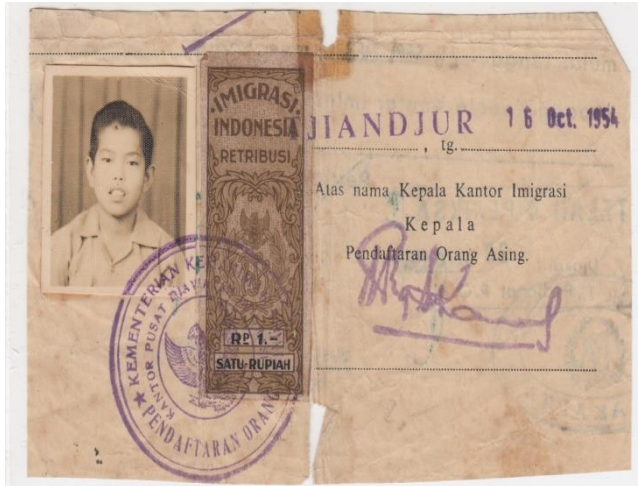 IMIGRASI
INDONESIA
RETRIBUSI
RP 1.-
SATU-RUPIAH
TJIANDJUR 16 Oct. 1954
, tg.
Atas nama Kepala Kantor Imigrasi
Kepala
Pendaftaran Orang Asing.
KEMENTERIAN KE
KANTOR PUSAT DJAWA
PENDAFTARAN ORANG